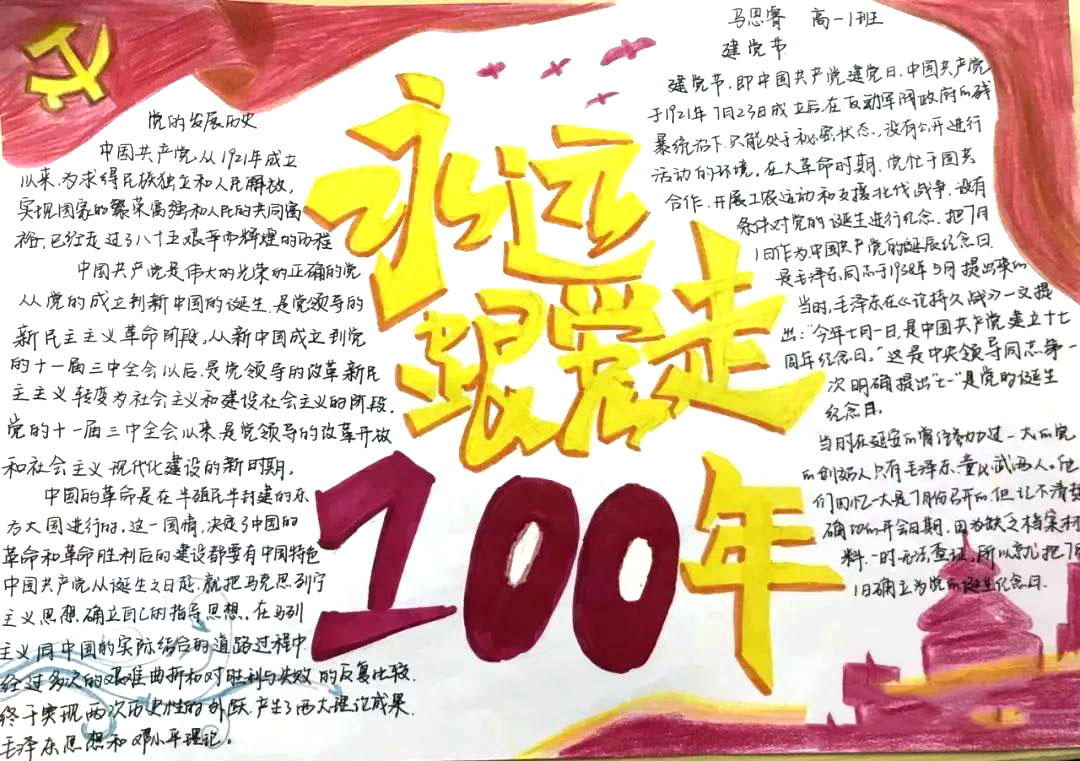 马思睿 高一1班
永远
跟党走
100年
党的发展历史
中国共产党从1921年成立
以来,为求得民族独立和人民解放,
实现国家的繁荣富强和人民的共同富
裕,已经走过了八十五艰辛而辉煌的历程
中国共产党是伟大的光荣的正确的党
从党的成立到新中国的诞生,是党领导的
新民主主义革命阶段,从新中国成立到党
的十一届三中全会以后,是党领导的改革新民
主主义转变为社会主义和建设社会主义的阶段.
党的十一届三中全会以来,是党领导的改革开放
和社会主义现代化建设的新时期。
中国的革命是在半殖民半封建的东
方大国进行的,这一国情,决定了中国的
革命和革命胜利后的建设都要有中国特色
中国共产党从诞生之日起,就把马克思列宁
主义思想确立自己的指导思想。在马列
主义同中国的实际结合的道路过程中
经过多次的艰难曲折和对胜利与失败的反复比较.
终于实现两次历史性的飞跃,产生了两大理论成果.
毛泽东思想和邓小平理论。
建党节
建党节,即中国共产党建党日,中国共产党
于1921年7月23日成立后在反动军阀政府的残
暴统治下,只能处于秘密状态,没有公开进行
活动的环境。在大革命时期,党忙于国共
合作、开展工农运动和支援北伐战争,没有
条件对党的诞生进行纪念。把7月
1日作为中国共产党的诞辰纪念日.
是毛泽东同志于1938年5月提出来的
当时,毛泽东在《论持久战》一文提
出:"今年七月一日,是中国共产党建立十七
周年纪念日。"这是中央领导同志第一
次明确提出"七一"是党的诞生
纪念日。
当时在延安的曾经参加过一大的党
的创始人只有毛泽东、董必武两人。他
们回忆一大是7月份召开的,但记不清楚
确切的开会日期,因为缺乏档案材
料,一时无法查证,所以就把7月
1日确立为党的诞生纪念日.